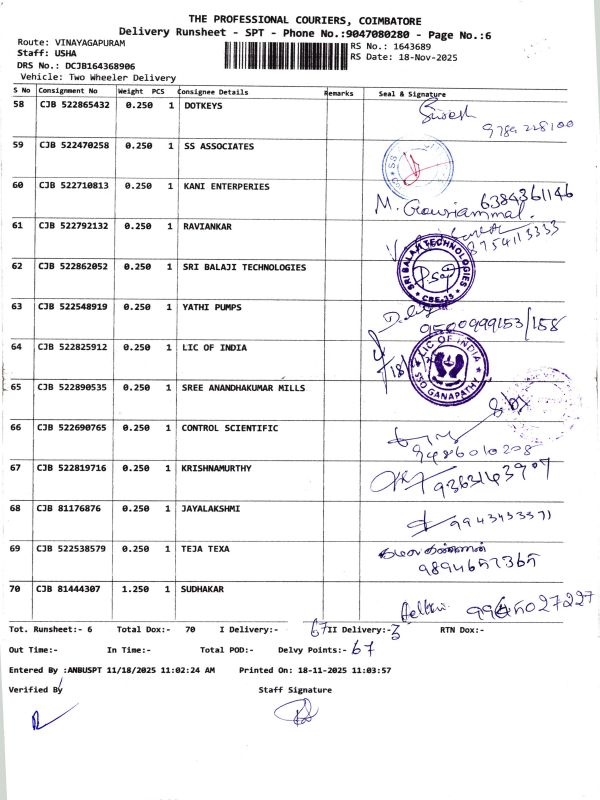 THE PROFESSIONAL COURIERS, COIMBATORE
Delivery Runsheet - SPT - Phone No.:9047080280 - Page No.:6
Route: VINAYAGAPURAM
RS No.: 1643689
Staff: USHA
RS Date: 18-Nov-2025
DRS No.: DCJB164368906
Vehicle: Two Wheeler Delivery
S No Consignment No Weight PCS Consignee Details Remarks Seal & Signature
58 CJB 522865432 0.250 1 DOTKEYS
Suresh
9789228100
59 CJB 522470258 0.250 1 SS ASSOCIATES
60 CJB 522710813 0.250 1 KANI ENTERPERIES
6384361146
M. Gowriammal.
61 CJB 522792132 0.250 1 RAVIANKAR
9754113333
62 CJB 522862052 0.250 1 SRI BALAJI TECHNOLOGIES
SRI BALAJI TECHNOLOGIES
CBE-35
63 CJB 522548919 0.250 1 YATHI PUMPS
9500999153/158
64 CJB 522825912 0.250 1 LIC OF INDIA
LIC OF INDIA
SSO GANAPATHY
65 CJB 522890535 0.250 1 SREE ANANDHAKUMAR MILLS
66 CJB 522690765 0.250 1 CONTROL SCIENTIFIC
9486010208
67 CJB 522819716 0.250 1 KRISHNAMURTHY
9363143907
68 CJB 81176876 0.250 1 JAYALAKSHMI
9943433371
69 CJB 522538579 0.250 1 TEJA TEXA
9894657365
70 CJB 81444307 1.250 1 SUDHAKAR
9965027227
Tot. Runsheet:- 6 Total Dox:- 70 I Delivery:- 67 II Delivery:- 3 RTN Dox:-
Out Time:- In Time:- Total POD:- Delvy Points:- 67
Entered By :ANBUSPT 11/18/2025 11:02:24 AM Printed On: 18-11-2025 11:03:57
Verified By Staff Signature